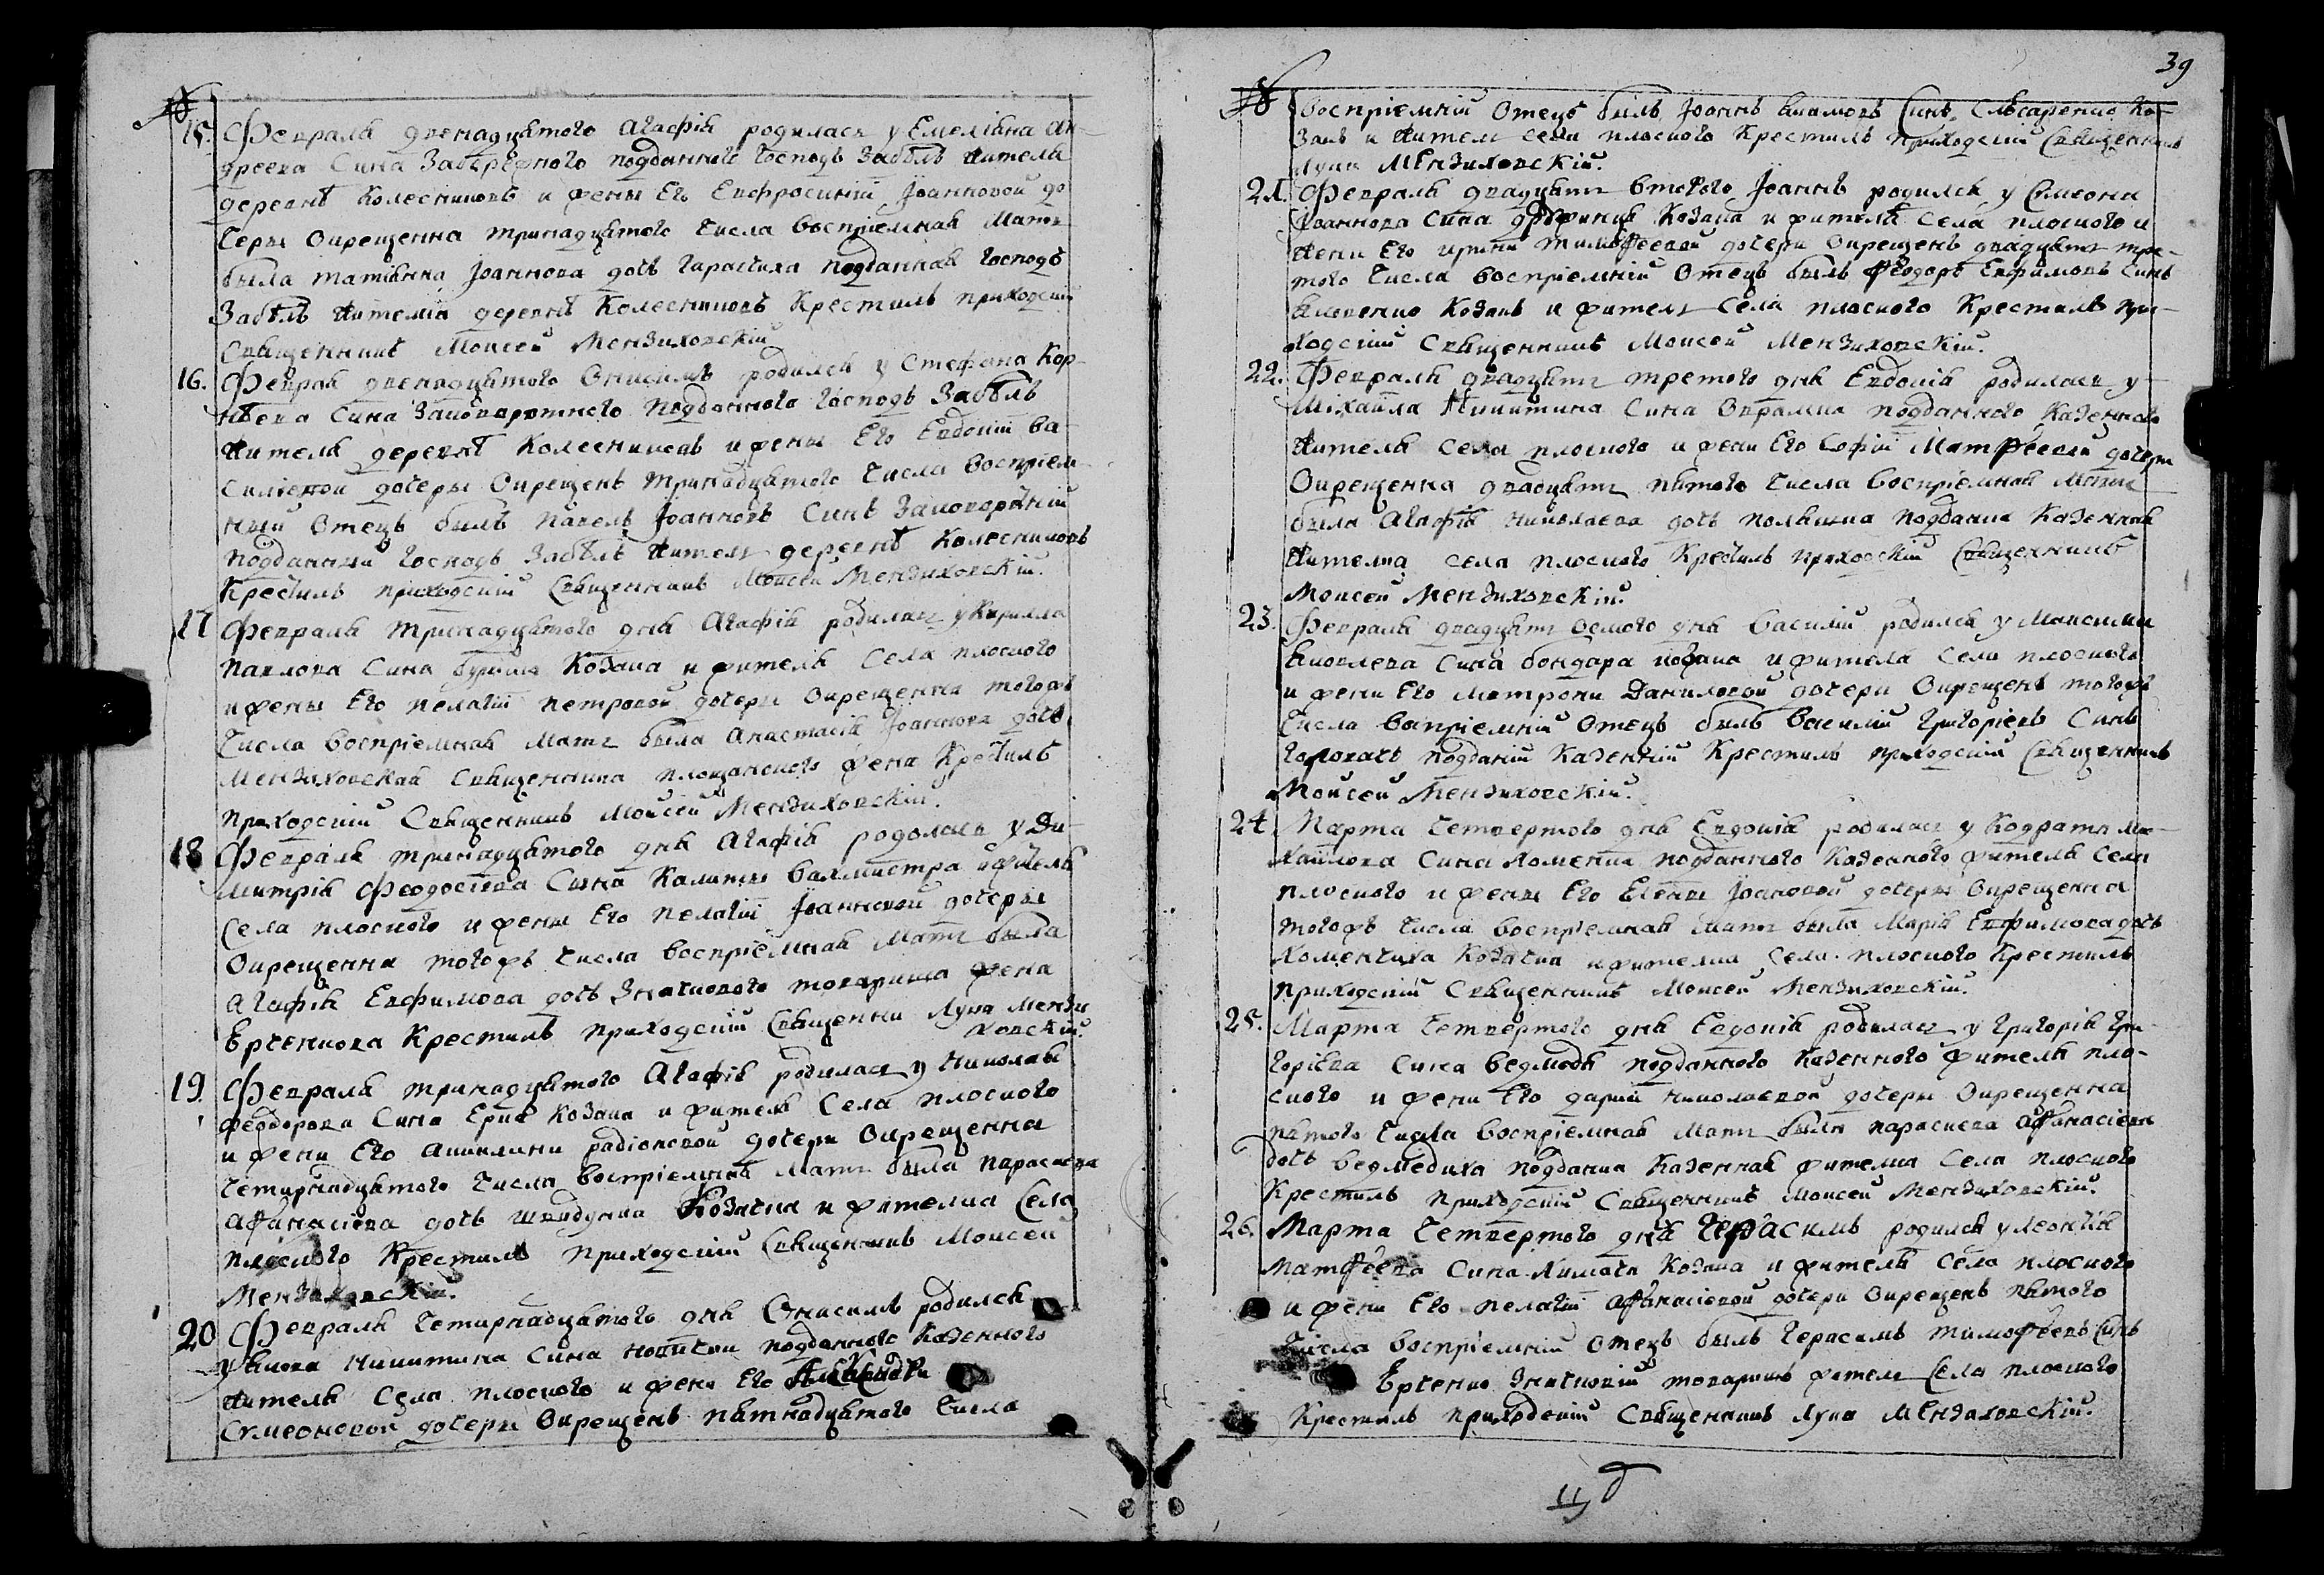 №
15. Февраля двенадцятого Агафія родилась у Емеліяна Ан-
дреева сина Забережного подданного господъ Забѣлъ жителя
деревнѣ Колесниковъ и жены Его Евфросиніи Іоанновой до
черы окрещенна тринадцятого числа воспріемная мать
была татіянна Іоаннова дочь подданная господъ
Забѣлъ жителка деревнѣ Колесниковъ Крестилъ приходскій
Священникъ Моисей Мензиховскій
16. Феврал двенадцятого Онисимъ родился у Стефана Кор-
нѣева сина подданного господъ Забѣлъ
жителя деревнѣ Колесниковъ и жены Его Евдокіи Ва-
силіевой дочеры окрещенъ тринадцятого числа воспріем-
ный отецъ былъ Павелъ Іоанновъ синъ
подданный господъ Забѣлъ жителъ деревнѣ Колесниковъ
Крестилъ приходскій Священникъ Моисей Мензиховскій.
17 Февраля тринадцятого дня Агафія родилась у Кирилла
Павлова сина Козака и жителя села плоского
и жены Его Пелагіи Петровой дочеры окрещенна того жъ
числа воспріемная мать была Анастасія Іоаннова дочь
Мензиховская Священника площанского жена Крестилъ
приходскій Священникъ Моисей Мензиховскій.
18 Февраля тринадцятого дня Агафія родолась у Ди-
митрія Феодосіева Сына Калиты и жителя
Села плоского и жены Его Пелагіи Іоанновой дочеры
Окрещенна того жъ числа воспріемная мать была
Агафія Евфимова дочь Значкового товариша жена
Ерченкова Крестилъ приходскій Священник Лука Мензи
ховскій.
19. Февраля тринадцятого Агафія родилась у Николая
Феодорова сина Козака и жителя Села плоского
и жени Его Акилини радіоновой дочери окрещенна
четирнадцятого числа воспріемная мать была параскева
Афанасіева дочь Козачка и жителка Села
плоского Крестилъ приходскій Священникъ Моисей
Мензиховскій.
20 Февраля четирнадцятого дня Онисимъ родился
у Якова Никитина сина подданного Казенного
жителя Села плоского и жени Его
Симеоновой дочеры окрещенъ пятнадцятого числа
39
№
воспріемній отецъ билъ Іоаннъ синъ Слѣсаренко Ко-
закъ и жителъ села плоского Крестилъ приходскій Священникъ
Лука Мензиховскій.
21. Февраля двадцять второго Іоаннъ родился у Симеона
Іоаннова сина Козака и жителя села плоского и
жени Его Ирини Тимофеевой дочери окрещенъ двадцять тре-
того числа воспріемній отецъ былъ Феодоръ Евфимовъ синъ
Яковенко Козакъ и жителъ села плоского Крестилъ при-
ходскій Священникъ Моисей Мензиховскій.
22. Февраля двадцять третого дня Евдокія родилась у
Міхаила Никитина сина подданного Казенного
жителя села плоского и жени Его Софіи Матфеевой дочери
Окрещенна двадцять пятого числа воспріемная мать
была Агафія Николаева дочь подданка Казенная
жителка села плоского Крестилъ приходскій Священникъ
Моисей Мензиховскій.
23. Февраля двадцять осмого дня Василій родился у Максима
Яковлева сина Бондара козака и жителя села плоского
и жени Его Матрони Даниловой дочери окрещенъ того жъ
числа вопріемній отецъ билъ Василій Григоріевъ синъ
подданій Казенній Крестилъ приходскій Священникъ
Моисей Мензиховскій.
24 Марта четвертого дня Евдокія родилась у Кодрата Ми-
хайлова сина Хоменка подданного Казенного жителя села
плоского и жены Его Елены Іоановой дочеры окрещенна
того жъ числа воспріемная мать была Марія Евфимова дочь
Хоменчиха Козачка и жителка села плоского Крестилъ
приходскій Священникъ Моисей Мензиховскій.
25. Марта четвертого дня Евдокія родилась у Григорія Гри-
горіева сина Ведмедя подданного Казенного жителя пло-
ского и жени Его Даріи Николаевой дочеры окрещенна
пятого числа воспріемная мать была параскева Афанасіева
дочь Ведмедиха подданка Казенная жителка села плоского
Крестилъ приходскій Священникъ Моисей Мензиховскій.
26. Марта четвертого дня Герасимъ родился у Леонтія
Матфеева сина Козака и жителя села плоского
и жени Его Пелагіи Афанасіевой дочери окрещенъ пятого
числа воспріемній отецъ билъ Герасимъ Тимофѣевъ синъ
Ерченко Значковій товаришъ жителъ села плоского
Крестилъ приходскій Священникъ Лука Мензиховскій.